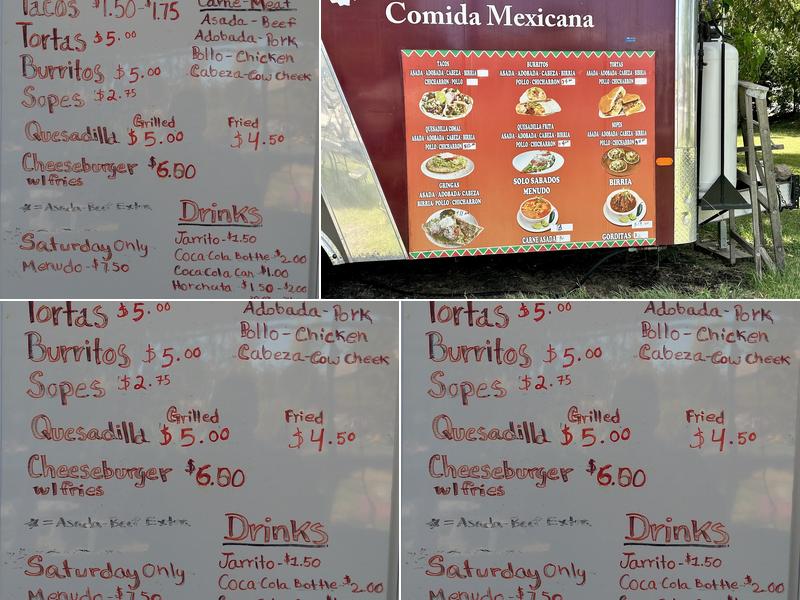 Tacos $1.50-$1.75
Carne-Meat
Asada-Beef
Adobada-Pork
Pollo-Chicken
Cabeza-Cow Cheek
Tortas $5.00
Burritos $5.00
Sopes $2.75
Grilled
Fried
Quesadilla $5.00
$4.50
Cheeseburger $6.00
w/fries
*=Asada-Beef Extra
Drinks
Jarrito-$1.50
Coca Cola Bottle-$2.00
Coca Cola Can $1.00
Horchata $1.50-$2.00
Saturday Only
Menudo-$7.50
Comida Mexicana
TACOS
ASADA · ADOBADA · CABEZA · BIRRIA
CHICHARRON · POLLO
BURRITOS
ASADA · ADOBADA · CABEZA · BIRRIA
POLLO · CHICHARRON
TORTAS
ASADA · ADOBADA · CABEZA · BIRRIA
POLLO · CHICHARRON
QUESADILLA COMAL
ASADA · ADOBADA · CABEZA · BIRRIA
POLLO · CHICHARRON
QUESADILLA FRITA
ASADA · ADOBADA · CABEZA · BIRRIA
POLLO · CHICHARRON
SOPES
ASADA · ADOBADA · CABEZA · BIRRIA
POLLO · CHICHARRON
GRINGAS
ASADA · ADOBADA · CABEZA
BIRRIA · POLLO · CHICHARRON
SOLO SABADOS
MENUDO
BIRRIA
CARNE ASADA
GORDITAS
Tortas $5.00
Adobada-Pork
Pollo-Chicken
Cabeza-Cow Cheek
Burritos $5.00
Sopes $2.75
Grilled
Fried
Quesadilla $5.00
$4.50
Cheeseburger $6.00
w/fries
*=Asada-Beef Extra
Drinks
Jarrito-$1.50
Coca Cola Bottle-$2.00
Saturday Only
Menudo-$7.50
Tortas $5.00
Adobada-Pork
Pollo-Chicken
Cabeza-Cow Cheek
Burritos $5.00
Sopes $2.75
Grilled
Fried
Quesadilla $5.00
$4.50
Cheeseburger $6.00
w/fries
*=Asada-Beef Extra
Drinks
Jarrito-$1.50
Coca Cola Bottle-$2.00
Saturday Only
Menudo-$7.50